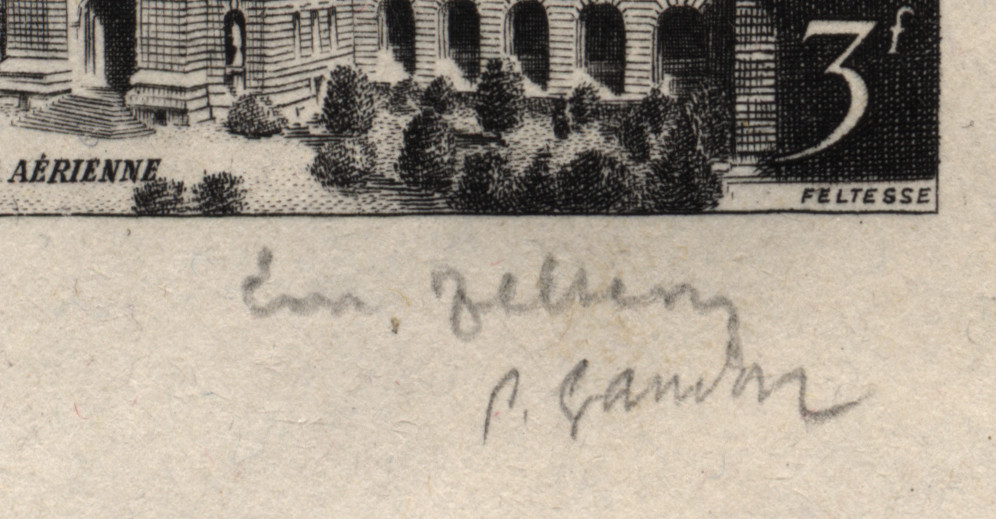 3f
AÉRIENNE
FELTESSE
Em. Feltesse
P. Gandon